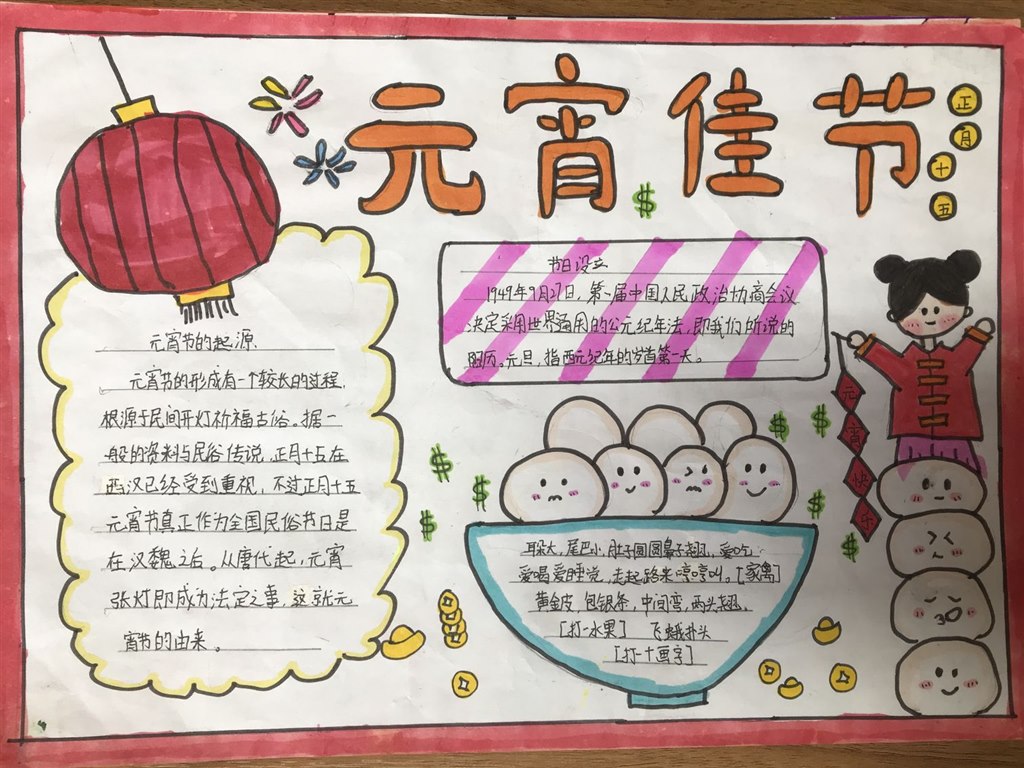 元宵佳节
正月十五
节日设立
1949年9月27日，第一届中国人民政治协商会议
决定采用世界通用的公元纪年法，即我们所说的
阳历。元旦，指西元纪年的岁首第一天。
元宵节的起源
元宵节的形成有一个较长的过程，
根源于民间开灯祈福古俗。据一
般的资料与民俗传说，正月十五在
西汉已经受到重视，不过正月十五
元宵节真正作为全国民俗节日是
在汉魏之后。从唐代起，元宵
张灯即成为法定之事，这就元
宵节的由来。
元宵快乐
耳朵大，尾巴小，肚子圆圆鼻子翘，爱吃
爱喝爱睡觉，走起路来哼哼叫。[家禽]
黄金皮，包银条，中间弯，两头翘。
[打一水果] 飞蛾扑头
[打一十画字]